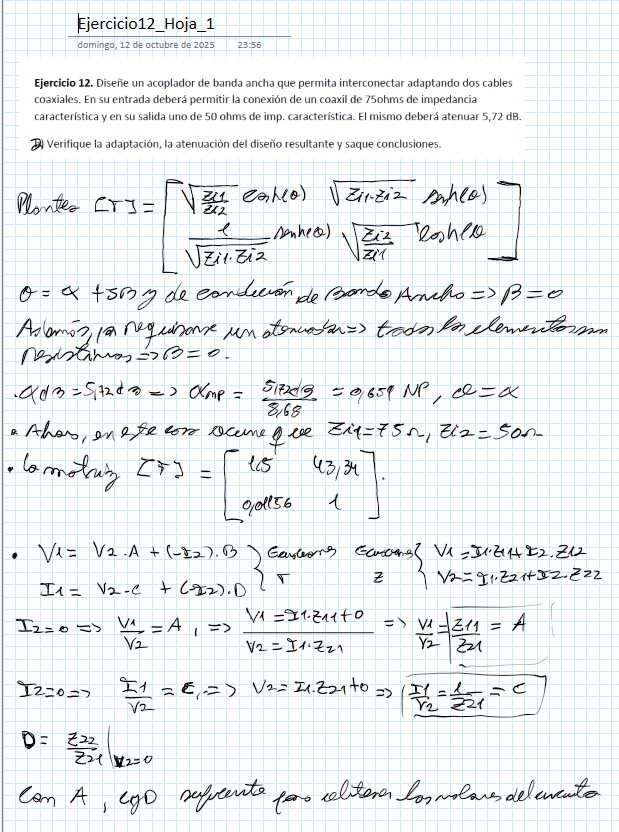 Ejercicio12_Hoja_1
domingo, 12 de octubre de 2025 23:56
Ejercicio 12. Diseñe un acoplador de banda ancha que permita interconectar adaptando dos cables
coaxiales. En su entrada deberá permitir la conexión de un coaxil de 75ohms de impedancia
característica y en su salida uno de 50 ohms de imp. característica. El mismo deberá atenuar 5,72 dB.
Verifique la adaptación, la atenuación del diseño resultante y saque conclusiones.
[T] = [ √(Zi1/Zi2) cosh(θ) √(Zi1·Zi2) senh(θ)
1/√(Zi1·Zi2) senh(θ) √(Zi2/Zi1) cosh(θ) ]
θ = α + jβ y de condición de Banda Ancha => β = 0
Además, un atenuador => todos los elementos son
resistivos => β = 0.
αdB = 5,72dB => αNP = 5,72dB/8,68 = 0,659 NP, θ = α
Ahora, en este caso ocurre que Zi1 = 75Ω, Zi2 = 50Ω
La matriz [T] = [ 1,5 43,34
0,01156 1 ].
V1 = V2·A + (-I2)·B } Ecuaciones Ecuaciones { V1 = I1·Z11 + I2·Z12
I1 = V2·C + (-I2)·D T Z V2 = I1·Z21 + I2·Z22
I2=0 => V1/V2 = A, => V1 = I1·Z11+0 / V2 = I1·Z21 => V1/V2 = Z11/Z21 = A
I2=0 => I1/V2 = C, => V2 = I1·Z21+0 => I1/V2 = 1/Z21 = C
D = Z22/Z21 | V2=0
Con A, C y D suficiente para obtener los valores del circuito